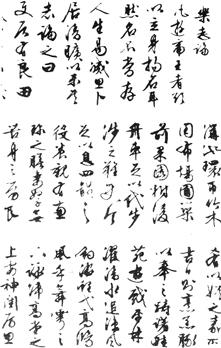 樂志論
凡遊帝王者欲
以立身揚名耳
然名不常存
人生易滅卜
居清曠以樂其
志論之曰
使居有良田
溝池環匝竹木
周布場圃築
前果園樹後
舟車足以代步
涉之難使令
足以息四體之
役養親有兼
珍之膳妻孥無
苦身之勞良
肴以娛之嘉
吉日則烹羔豚
以奉之躊躇畦
苑遊戲平林
濯清水追涼風
釣游鯉弋高鴻
風於舞雩之
下詠歸高堂之
上安神閨房思